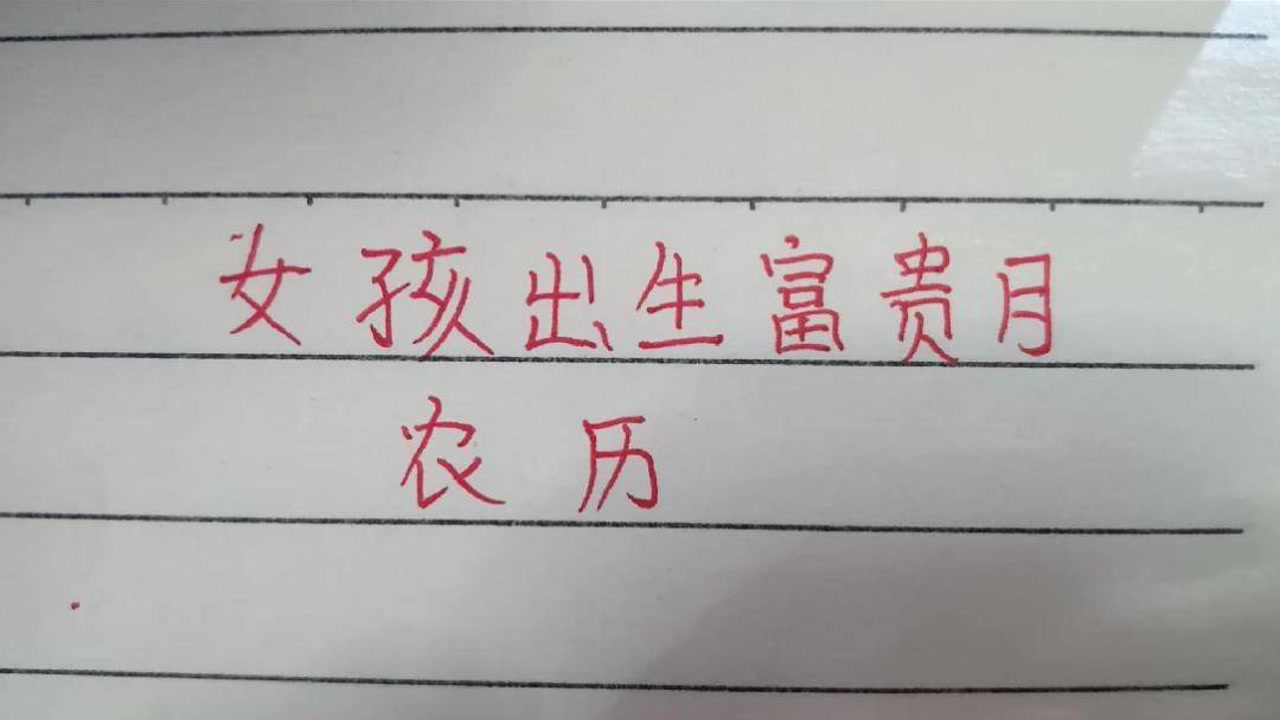 女孩出生富贵月
农历